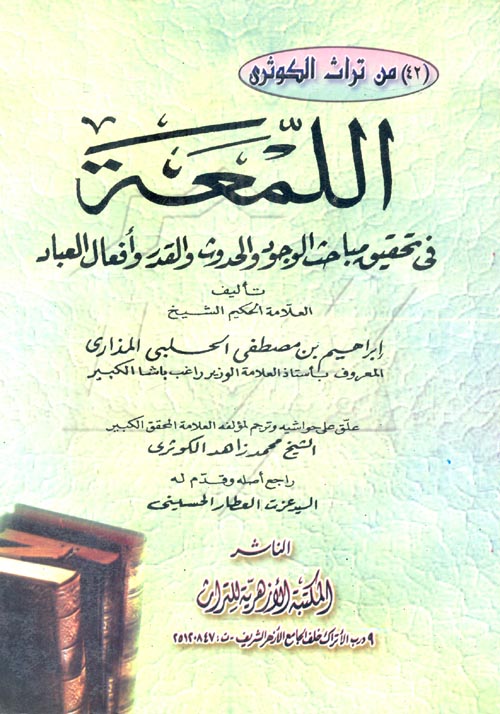 (٤٢) من تراث الكوثرى
اللمعة
فى تحقيق مباحث الوجود والحدوث والقدر وأفعال العباد
تأليف
العلامة الحكيم الشيخ
إبراهيم بن مصطفى الحلبى المذارى
المعروف بأستاذ العلامة الوزير راغب باشا الكبير
علق على حواشيه وترجم لمؤلفه العلامة المحقق الكبير
الشيخ محمد زاهد الكوثرى
راجع أصله وقدم له
السيد عزت العطار الحسينى
الناشر
المكتبة الأزهرية للتراث
٩ درب الأتراك خلف الجامع الأزهر الشريف - ت : ٢٥١٢٠٨٤٧